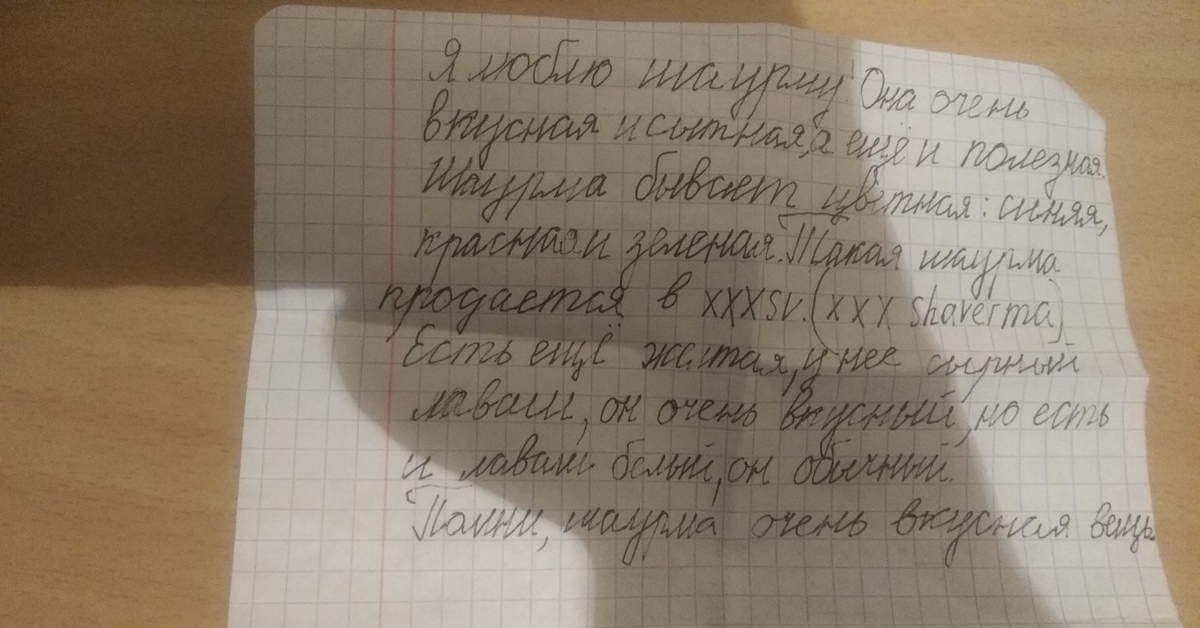 Я люблю шаурму! Она очень
вкусная и сытная, а ещё и полезная.
Шаурма бывает цветная: синяя,
красная и зеленая. Такая шаурма
продается в XXXSV. (XXX Shaverma)
Есть ещё желтая, у нее сырный
лаваш, он очень вкусный, но есть
и лаваш белый, он обычный.
Помни, шаурма очень вкусная вещь